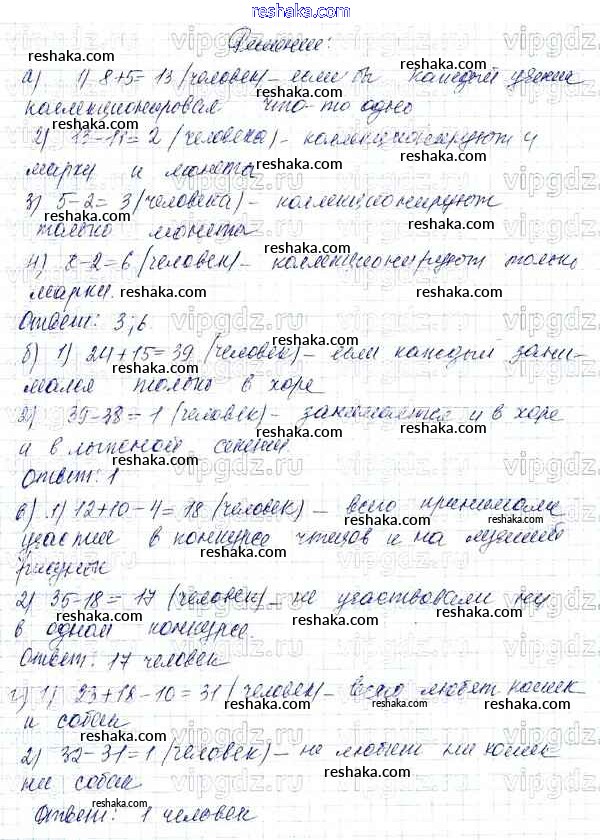 reshaka.com
Решение:
а) 1) 8+5=13 (человек) – если бы каждый ученик
коллекционировал что-то одно
2) 13-11=2 (человека) – коллекционируют и
марки и монеты
3) 5-2=3 (человека) – коллекционируют
только монеты
4) 8-2=6 (человек) – коллекционируют только
марки.
Ответ: 3; 6.
б) 1) 24+15=39 (человек) – если каждый зани-
мался только в хоре
2) 39-38=1 (человек) – занимается и в хоре
и в лыжной секции
Ответ: 1
в) 1) 12+10-4=18 (человек) – всего принимали
участие в конкурсе чтецов и на лучший
рисунок
2) 35-18=17 (человек) – не участвовали ни
в одном конкурсе.
Ответ: 17 человек
г) 1) 23+18-10=31 (человек) – всего любят кошек
и собак
2) 32-31=1 (человек) – не любит ни кошек
ни собак
Ответ: 1 человек